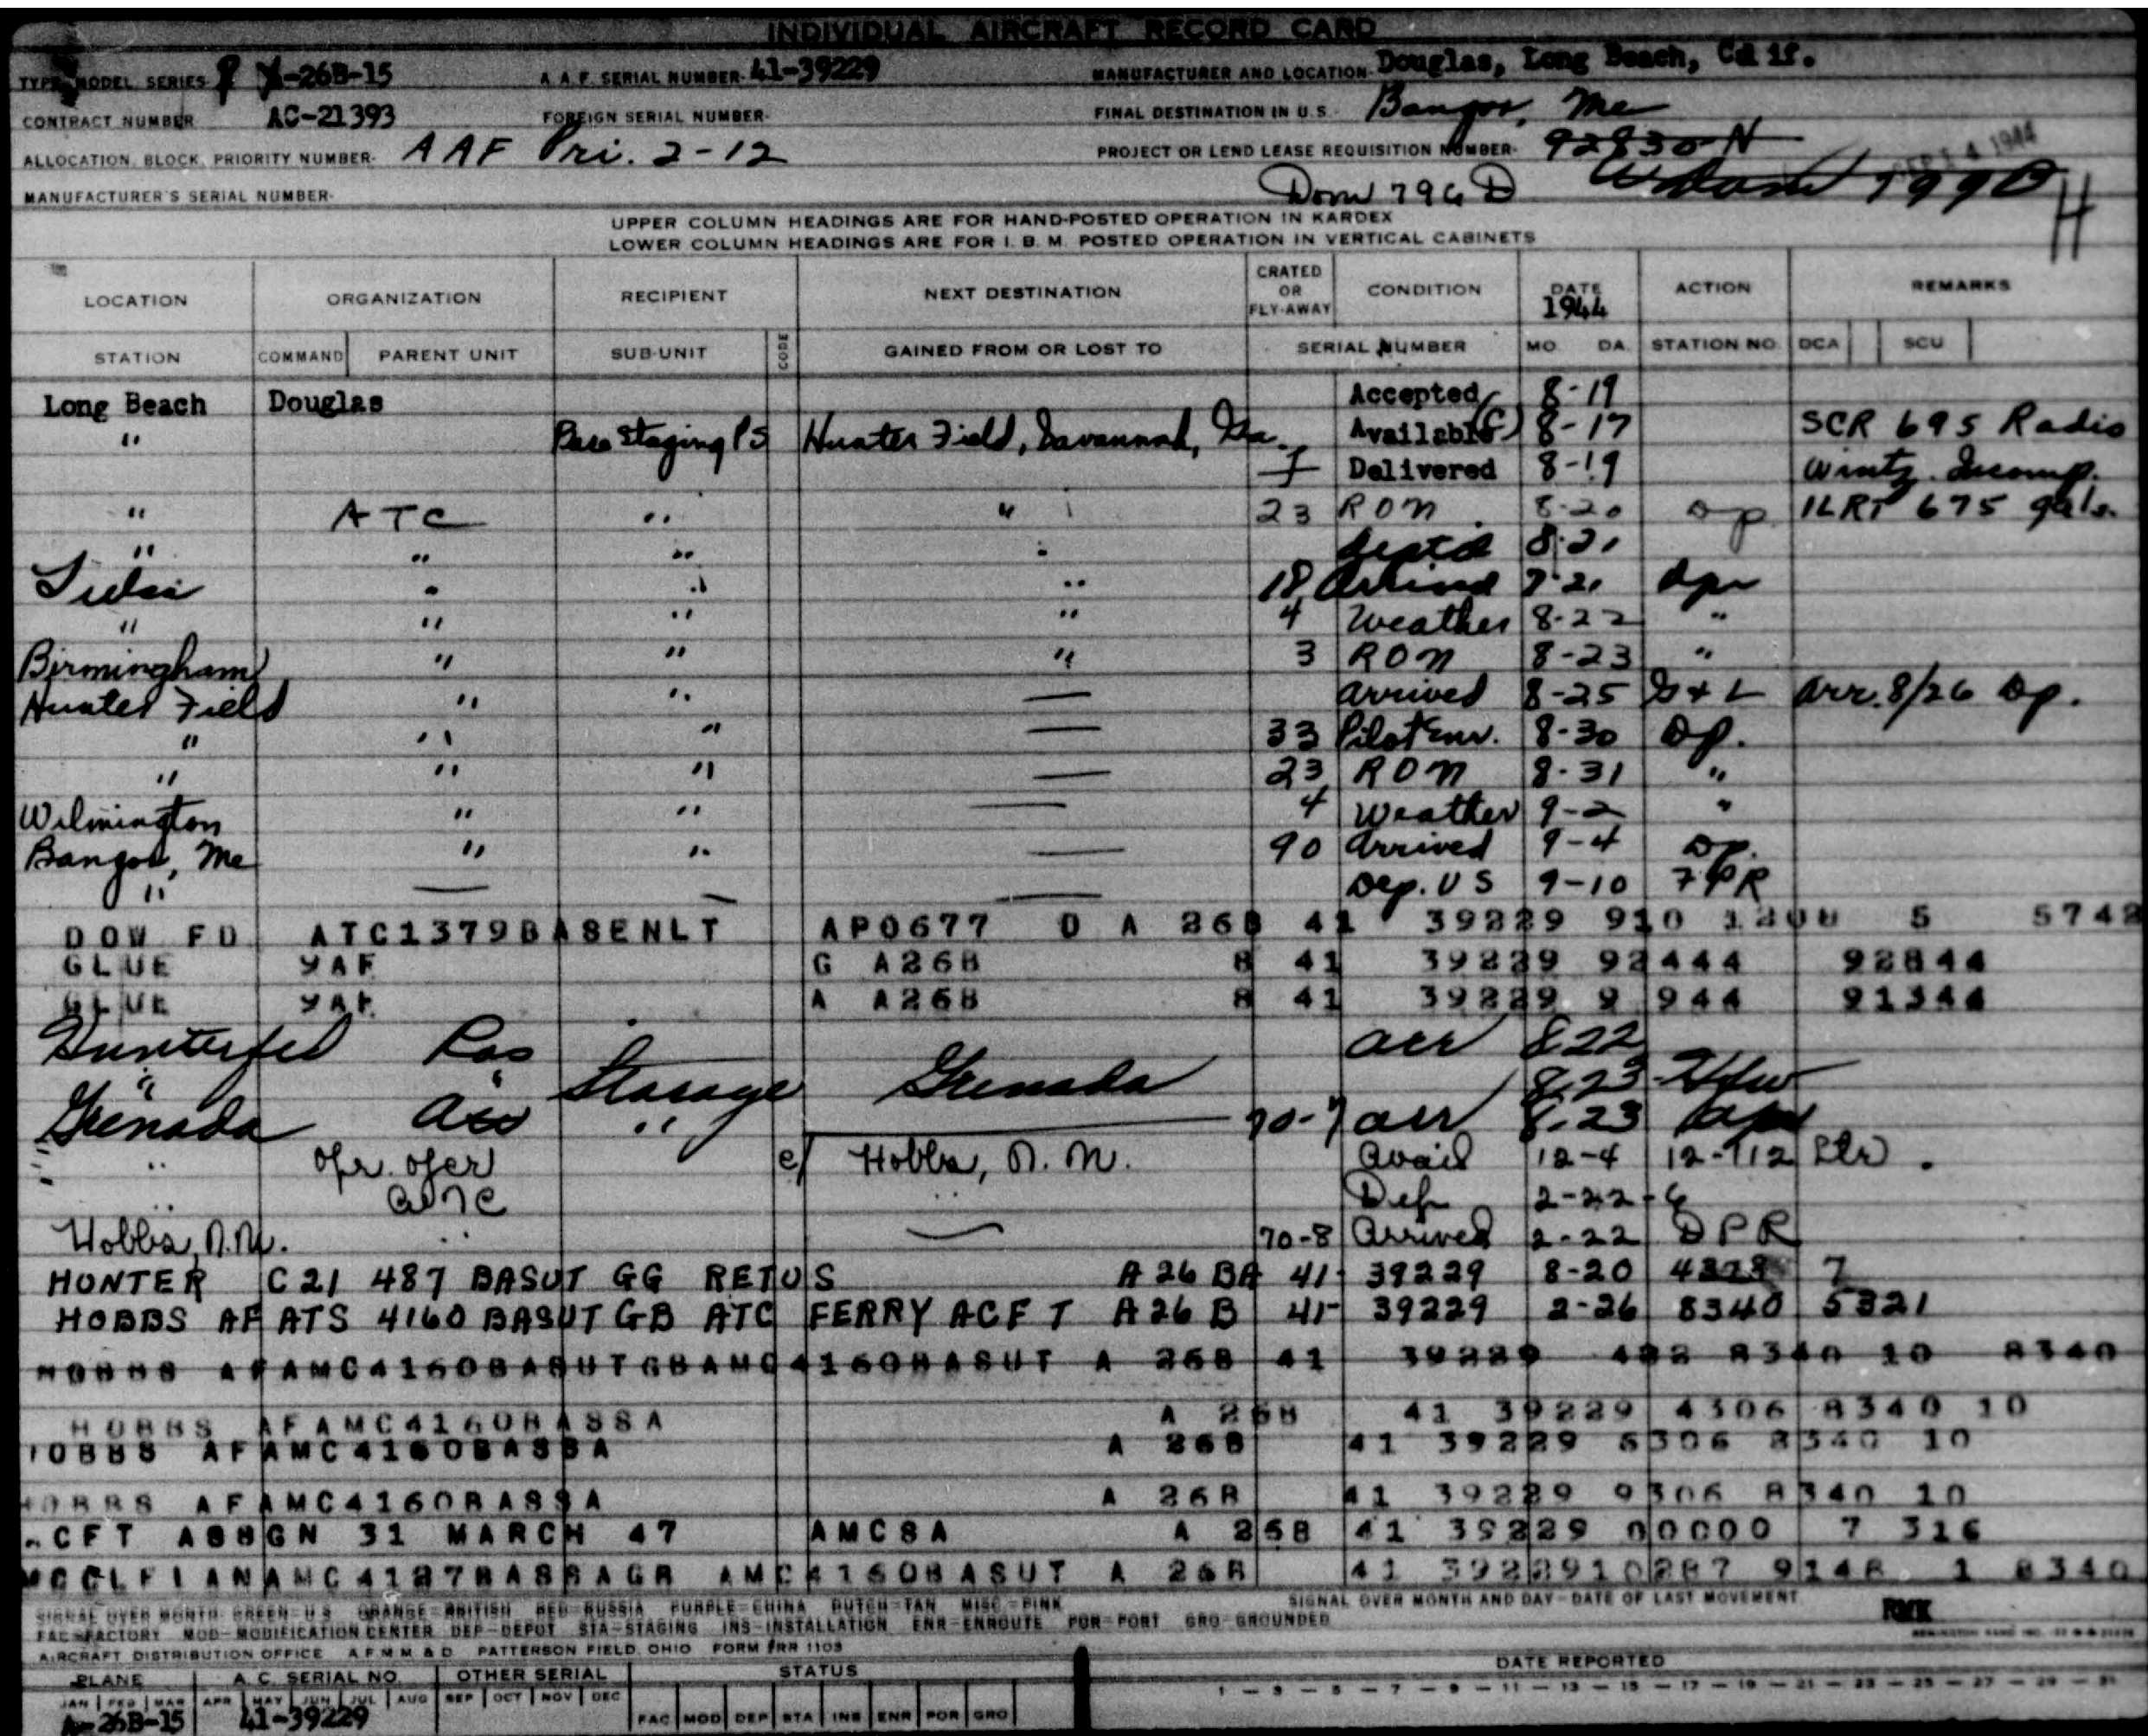 INDIVIDUAL AIRCRAFT RECORD CARD
TYPE MODEL SERIES A-26B-15 A.A.F. SERIAL NUMBER- 41-39229 MANUFACTURER AND LOCATION- Douglas, Long Beach, Calif.
CONTRACT NUMBER AC-21393 FOREIGN SERIAL NUMBER- FINAL DESTINATION IN U.S.- Bangor, Me
ALLOCATION, BLOCK, PRIORITY NUMBER- AAF Pri. 2-12 PROJECT OR LEND LEASE REQUISITION NUMBER- 92830-N SEPT 4 1944
MANUFACTURER'S SERIAL NUMBER- Dom 796 D 799D H
UPPER COLUMN HEADINGS ARE FOR HAND-POSTED OPERATION IN KARDEX
LOWER COLUMN HEADINGS ARE FOR I. B. M. POSTED OPERATION IN VERTICAL CABINETS
LOCATION ORGANIZATION RECIPIENT NEXT DESTINATION CRATED OR FLY-AWAY CONDITION DATE 1944 ACTION REMARKS
STATION COMMAND PARENT UNIT SUB-UNIT CODE GAINED FROM OR LOST TO SERIAL NUMBER MO. DA. STATION NO. DCA SCU
Long Beach Douglas Accepted 8-19
" Staging Hunter Field, Savannah, Ga. Available (C) 8-17 SCR 695 Radio
Delivered 8-19 Wintz. Incomp.
" ATC " " 23 RON 8-20 Dp 1LRT 675 gals.
" " " " Dept'd 8-21
" " " 18 Arrived 8-21 Dpr
" " " " 4 Weather 8-22 "
Birmingham " " " 3 RON 8-23 "
Hunter Field " " — Arrived 8-25 G & L Arr. 8/26 Dp.
" " " — 33 Pilot Enr. 8-30 Dp.
" " " — 23 RON 8-31 "
Wilmington " " — 4 Weather 9-2 "
Bangor, Me " " — 90 Arrived 9-4 Dp.
" — — — Dep. US 9-10 7PR
DOW FD ATC1379BASENLT APO677 D A 26B 41 39229 910 1208 5 5742
GLUE 9AF G A26B B 41 39229 92444 92844
GLUE 9AF A A26B B 41 39229 9 944 91344
Hunterfld arr 8.22
" " Storage Grenada 8.23
Grenada " — 70-7 arr 8.23
" ofr. ofer c/ Hobbs, N. M. Avail 12-4 12-712 Ltr.
" ATC " Dep 2-22-6
Hobbs, N.M. " — 70-8 Arrived 2-22 DPR
HUNTER C21 487 BASUT GG RETUS A26 BA 41- 39229 8-20 7
HOBBS AF ATS 4160 BASUT GB ATC FERRY ACFT A26 B 41- 39229 2-26 8340 5321
HOBBS AFAMC4160BASUTGBAMC4160BASUT A 26B 41 39229 402 8340 10 8340
HOBBS AFAMC4160BASSA A 26B 41 39229 4306 8340 10
HOBBS AFAMC4160BASSA A 26B 41 39229 6306 8340 10
HOBBS AFAMC4160BASSA A 26B 41 39229 9306 8340 10
ACFT ASSGN 31 MARCH 47 AMCSA A 26B 41 39229 00000 7 316
MCCLELANAMC4127BASSAGB AMC4160BASUT A 26B 41 3922910287 9148 1 8340
SIGNAL OVER MONTH: GREEN=U.S. ORANGE=BRITISH RED=RUSSIA PURPLE=CHINA DUTCH=TAN MISC.=PINK SIGNAL OVER MONTH AND DAY-DATE OF LAST MOVEMENT
FAC-FACTORY MOD-MODIFICATION CENTER DEP-DEPOT STA-STAGING INS-INSTALLATION ENR-ENROUTE POR-PORT GRO-GROUNDED RMK
AIRCRAFT DISTRIBUTION OFFICE A F M M & D PATTERSON FIELD, OHIO FORM PRR 1103
PLANE A.C. SERIAL NO. OTHER SERIAL STATUS DATE REPORTED
JAN FEB MAR APR MAY JUN JUL AUG SEP OCT NOV DEC 1-3-5-7-9-11-13-15-17-19-21-23-25-27-29-31
A-26B-15 41-39229 FAC MOD DEP STA INS ENR POR GRO